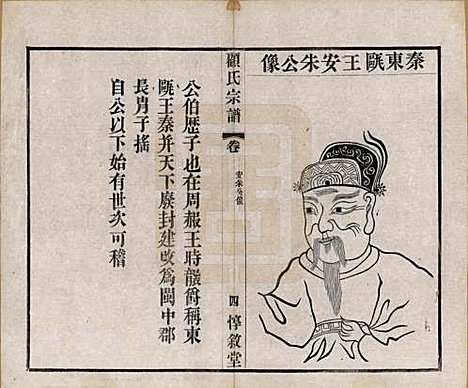 秦東甌王安朱公像
顧氏宗譜 卷 安朱公像 四 惇敘堂
公伯歷子也在周赧王時襲爵稱東
甌王秦并天下廢封建改為閩中郡
長肖子搖
自公以下始有世次可稽